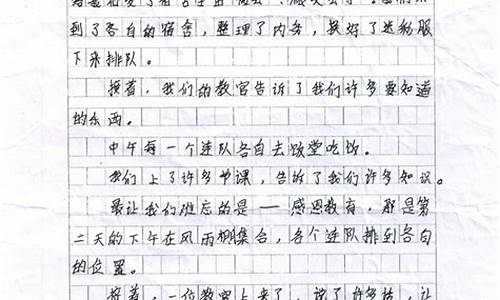 到了各自的宿舍,整理了内务,换好了迷彩服
下来排队。
接着,我们的教官告诉了我们许多要知道
的东西。
中午每一个连队各自去饭堂吃饭。
我们上了许多节课,告诉了我们许多知识。
最让我们难忘的是——感恩教育,那是第
二天的下午在风雨棚集合,各个连队排到各自
的位置。
接着,一位教官上来了,说了许多话,让